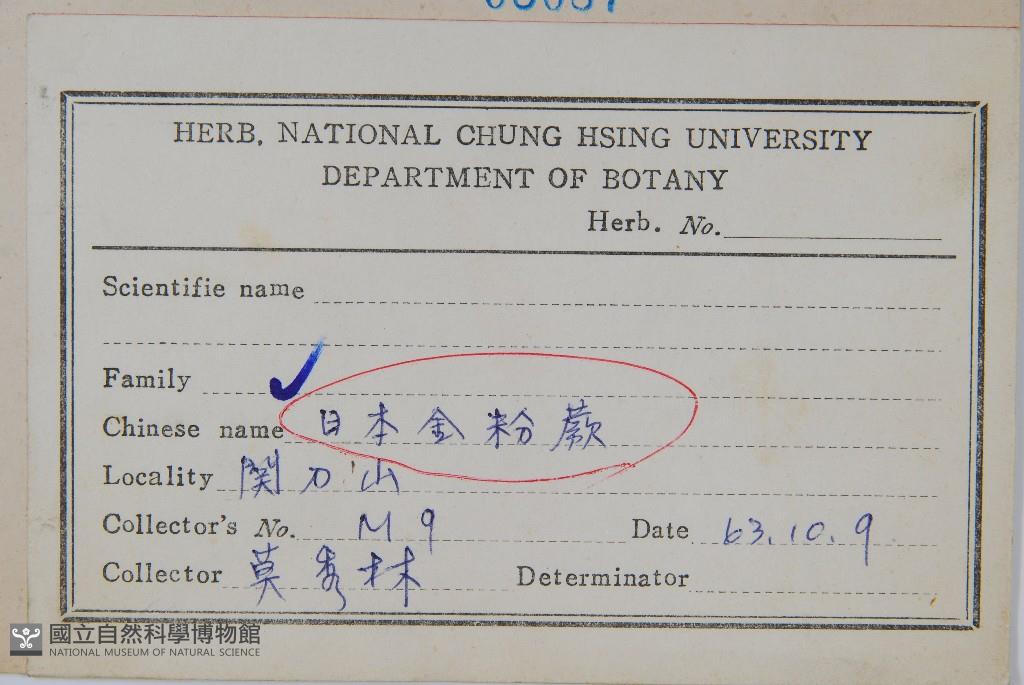 HERB, NATIONAL CHUNG HSING UNIVERSITY
DEPARTMENT OF BOTANY
Herb. No.
Scientifie name
Family
Chinese name 日本金粉蕨
Locality 関刀山
Collector's No. M9 Date 63.10.9
Collector 莫秀林 Determinator
國立自然科學博物館
NATIONAL MUSEUM OF NATURAL SCIENCE